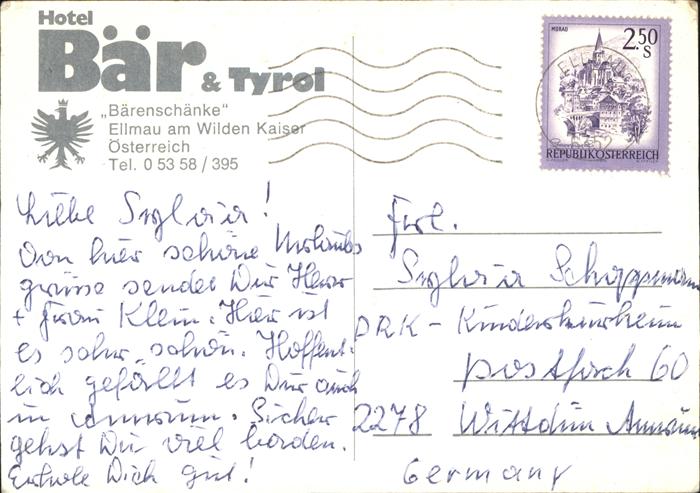 Hotel
Bär & Tyrol
„Bärenschänke“
Ellmau am Wilden Kaiser
Österreich
Tel. 0 53 58 / 395
MURAU
2.50
S
REPUBLIK ÖSTERREICH
Liebe Sylvia!
Von hier schöne Urlaubs
grüsse sendet Dir Herr
+ Frau Klein. Hier ist
es sehr schön. Hoffent-
lich gefällt es Dir auch
in Amrum. Sicher
gehst Du viel baden.
Erhole Dich gut!
Frl.
Sylvia Schoppmann
DRK - Kinderkurheim
Postfach 60
2278 Wittdün Amrum
Germany